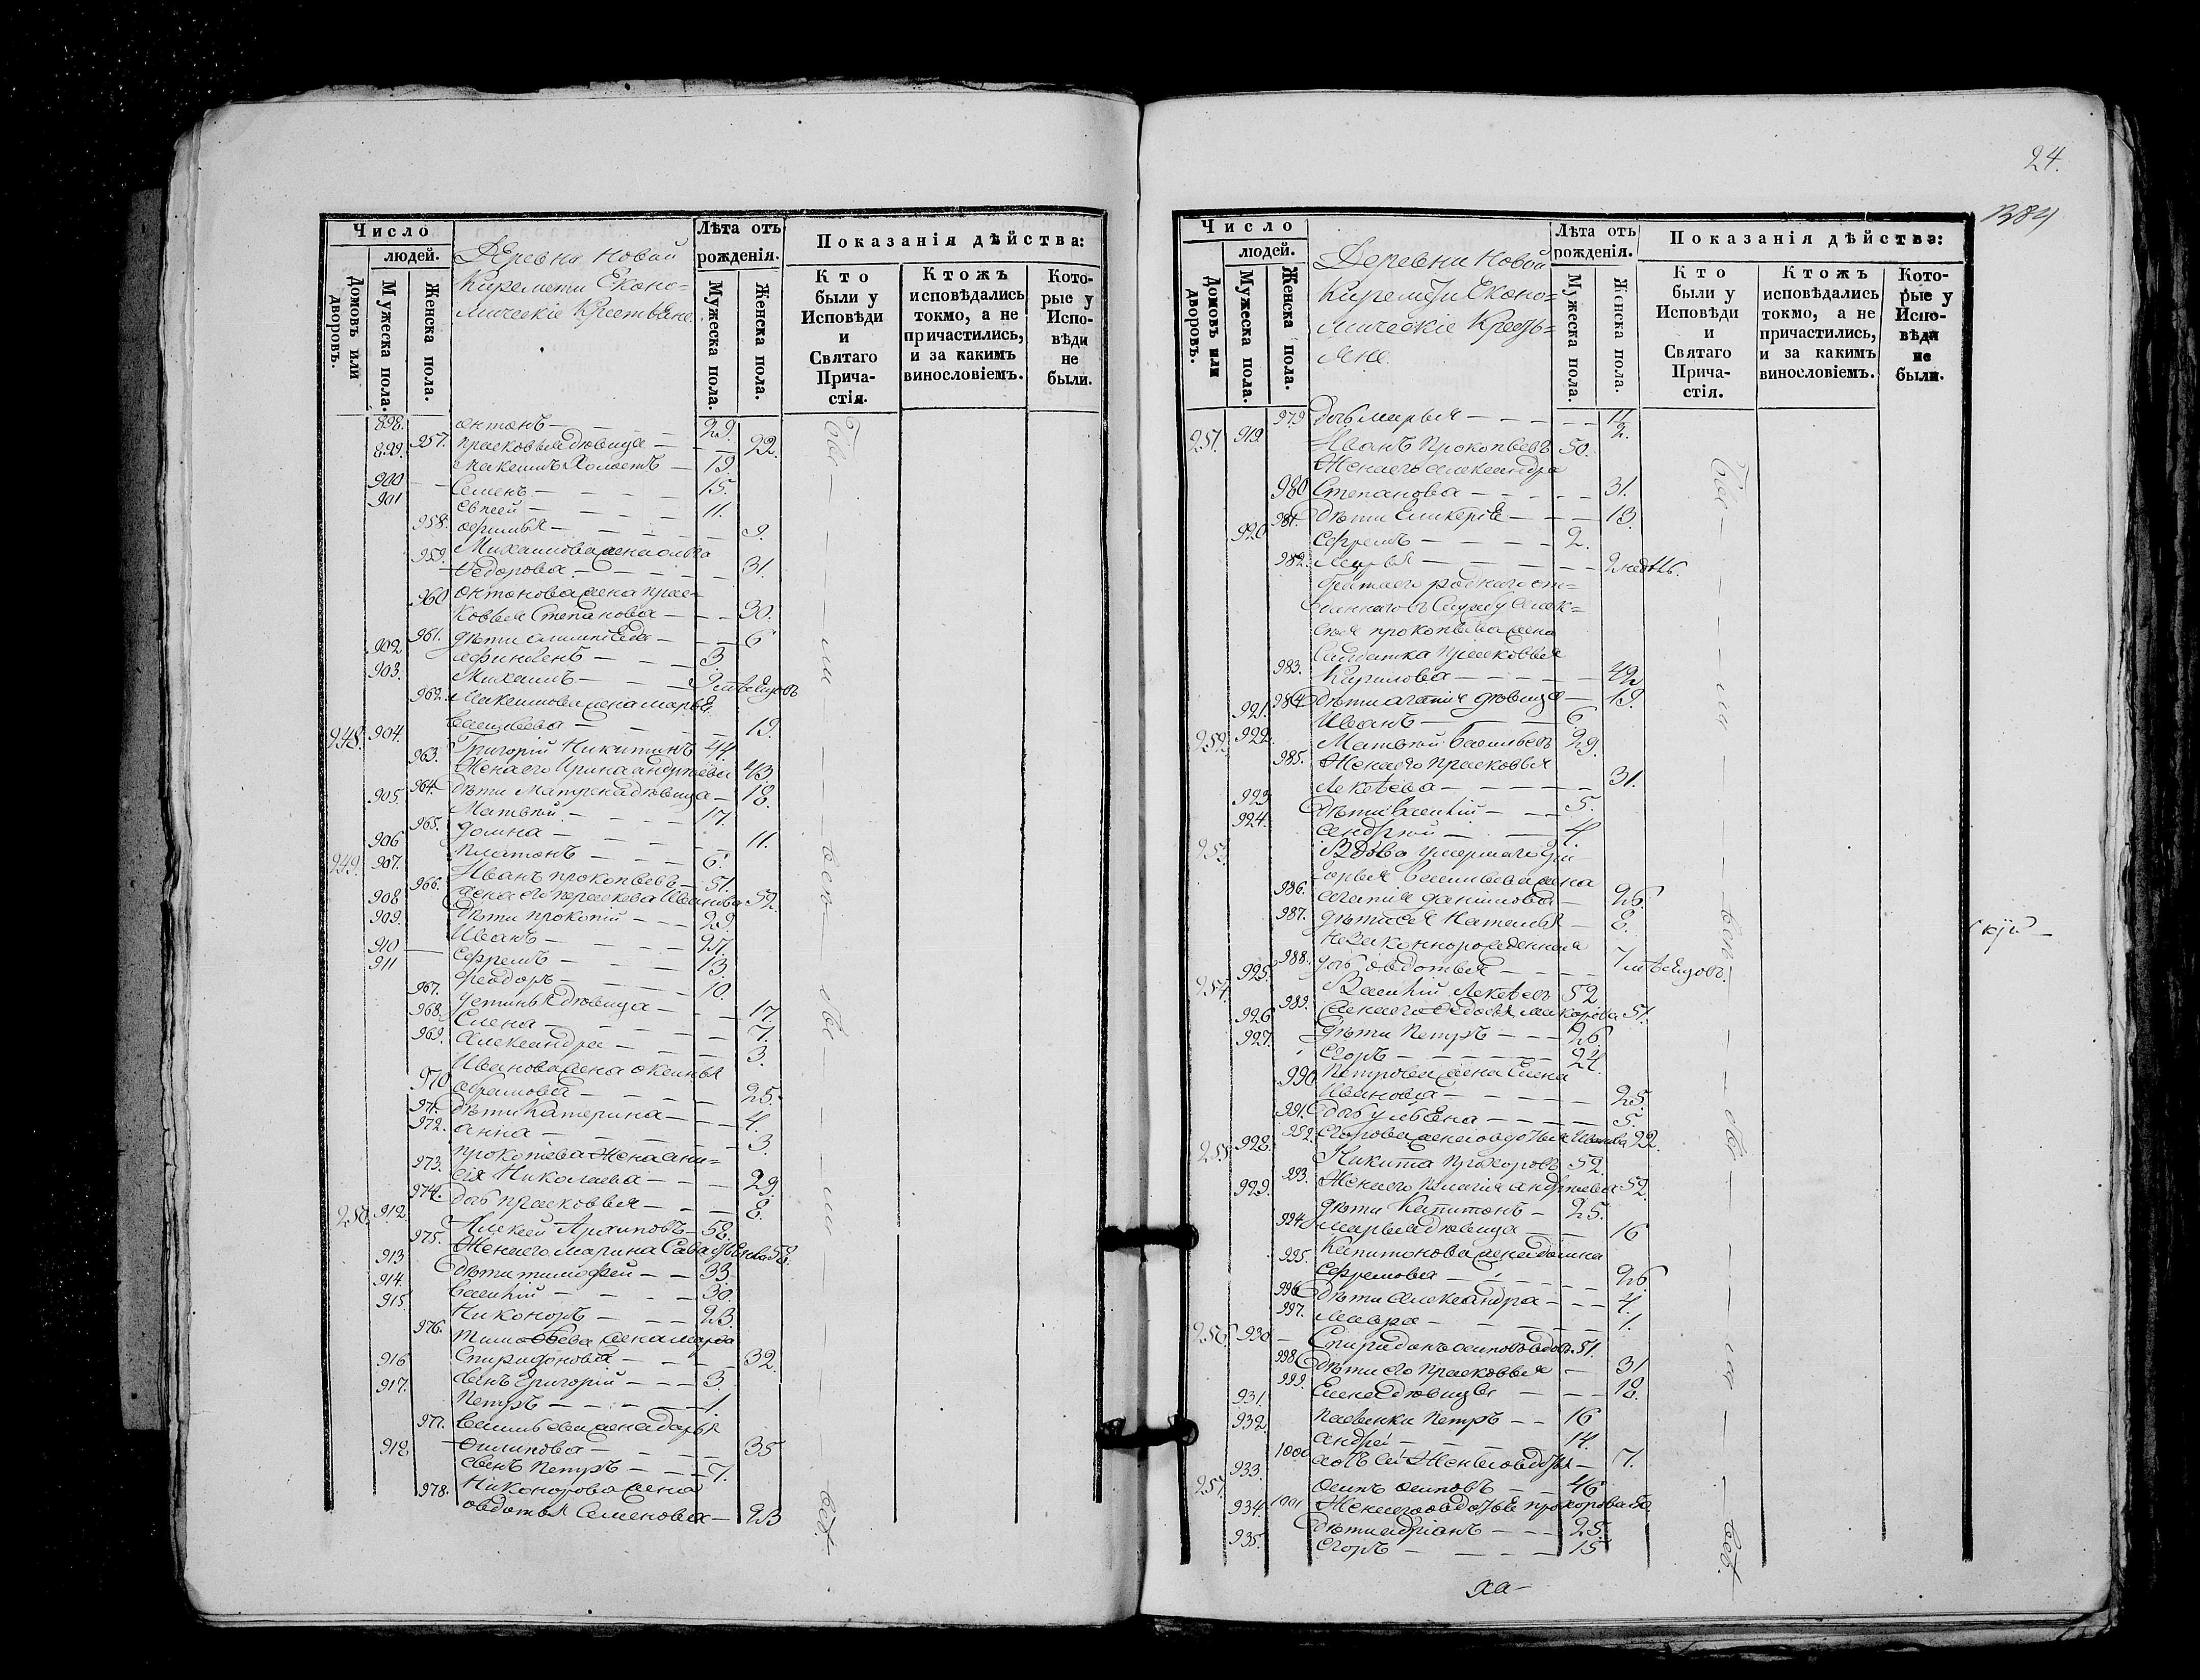 Число
людей.
Домовъ или дворовъ.
Мужеска пола.
Женска пола.
Деревни Новой
Киремети Еконо=
мическіе Крестьяне.
Лѣта отъ
рожденія.
Мужеска пола.
Женска пола.
Показанія дѣйства:
Кто
были у
Исповѣди
и
Святаго
Прича-
стія.
Ктожъ
исповѣдались
токмо, а не
причастились,
и за какимъ
винословіемъ.
Кото-
рые у
Испо-
вѣди
не
были.
898. антонъ — 29.
957. прасковья дѣвица — 22.
899. Максимъ Холостъ — 19.
900 Семенъ — 15.
901 Евсей — 11.
958. афимья — 9.
Михаилова жена ольга
959. Ѳедорова — 31.
антонова жена прас=
960 ковья Степанова — 30.
961. дѣти — 6
902 — 3.
903. Михаилъ — 9 мѣсяцовъ
962. Максимова жена марья
васильева — 19.
248. 904. Григорій Никитинъ 44.
963. Жена его Ирина андрѣева 43
964. дѣти Матрена дѣвица — 18.
905. Матвѣй — 17.
965. домна — 11.
906 платонъ — 6.
249. 907. Иванъ прокопьевъ — 51.
966. жена его параскева Иванова 52.
908 дѣти прокопій — 29.
909. Иванъ — 27.
910 Ефремъ — 13.
911 Феодоръ — 10.
967. устинья дѣвица — 17.
968. Елена — 7.
969. Александра — 3.
Иванова жена оксинья
970 абрамова — 25.
971. дѣти Катерина — 4.
972. анна — 3.
прокопьева Жена ани=
973. сія Николаева — 29.
974. дочь прасковья — 8.
250. 912 Алексей Архиповъ — 58.
975. Жена его марина Савельева 58.
913 дѣти тимофей — 33.
914. василій — 30.
915. Никоноръ — 23.
976. тимофеева жена марфа
Спиридонова — 32.
916 сынъ Григорій — 3.
917. Петръ — 1.
977. васильева жена дарья
Филипова — 35
918 сынъ Петръ — 7.
Никонорова жена
978. авдотья Семенова — 23
24.
384
Число
людей.
Домовъ или дворовъ.
Мужеска пола.
Женска пола.
Деревни Новой
Киремети Еконо=
мическіе Кресть=
яне.
Лѣта отъ
рожденія.
Мужеска пола.
Женска пола.
Показанія дѣйства:
Кто
были у
Исповѣди
и
Святаго
Прича-
стія.
Ктожъ
исповѣдались
токмо, а не
причастились,
и за какимъ
винословіемъ.
Кото-
рые у
Испо-
вѣди
не
были.
979 дочь марья — 2.
251. 919. Иванъ Прокопьевъ 50.
Жена его александра
980 Степанова — 31.
981. дѣти — 13.
920 Ефремъ — 2.
982. Марья — 2 недѣль.
брата его роднаго от=
даннаго в службу алек=
сѣя прокопьева жена
Салдатка прасковья
983. Кирилова — 42
984 дѣти агапія дѣвица — 19.
921. Иванъ — 6
252. 922. Матвѣй васильевъ 29.
985. Жена его прасковья
Алексѣева — 31.
923. дѣти василій — 5.
924. андрѣй — 4.
253. Вдова умершаго Гри
горья васильева жена
986. агапія данилова — 26.
987. дѣти ея Наталья — 8.
Незаконнорожденная
988. дочь авдотья — 7 мѣсяцовъ.
254. 925. Василій Алексѣевъ 52
989. жена его Федосья макарова 51.
926 дѣти Петръ — 26.
927. Егоръ — 24.
Петрова жена Елена
990 Иванова — 25.
991. дочь ульяна — 5.
992. Егорова жена авдотья Иванова 22.
255. 928. Никита прохоровъ 52.
993. Жена его Пелагія андрѣева 52.
929. дѣти Капитонъ — 25.
994 марья дѣвица — 16
Капитонова жена домна
995. Ефремова — 26
996 дѣти александра — 4.
997. Мавра — 1.
256. 930 — Спиридонъ осиповъ вдовъ 51.
998 дѣти его прасковья — 31
999. Елена дѣвица — 18.
931. пасынки Петръ — 16
932 андрей — 14.
1000 — 7.
257. 933. осипъ осиповъ — 46
1001 Жена его авдотья прохорова 50.
934. дѣти адріанъ — 25.
935. Егоръ — 15
ха-